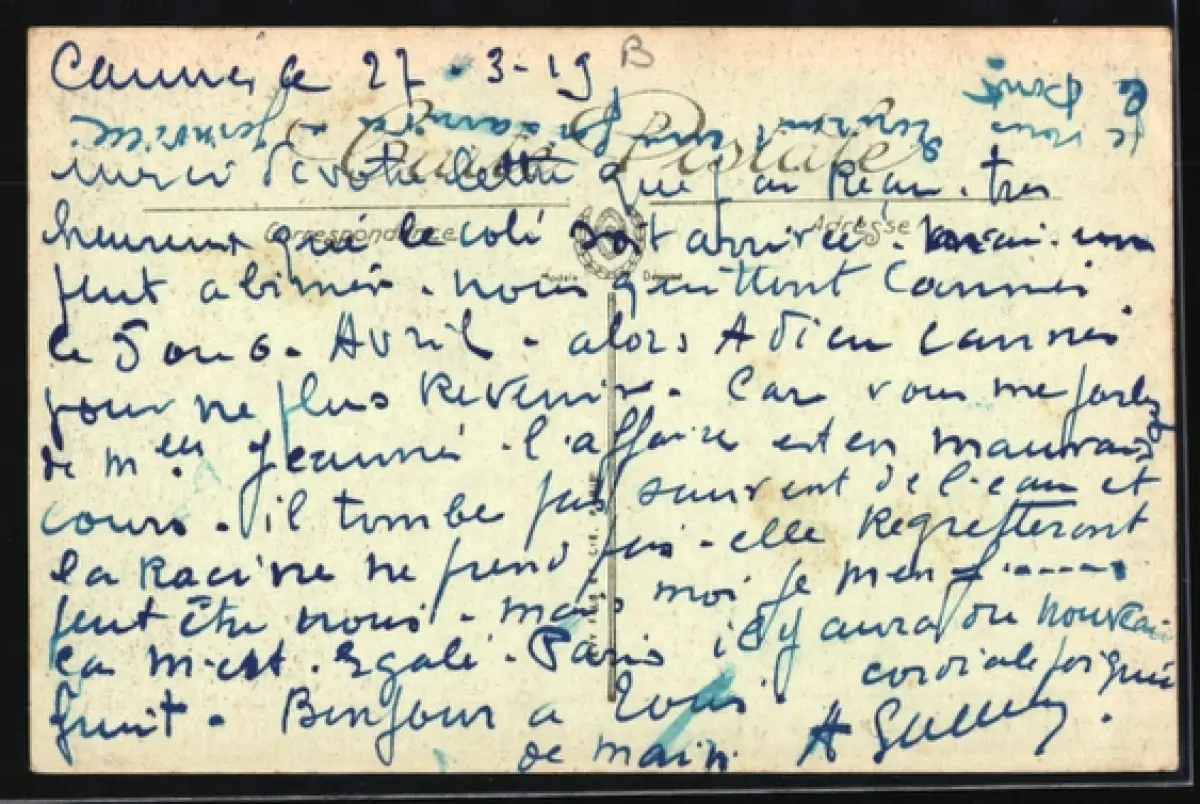 Cannes le 27-3-19
B
Carte Postale
merci de votre lettre que j'ai Reçu. tres
Correspondance Adresse
heureux que le coli soit arrivée. mai. un
peut abimér. nous quittent Cannes
le 5 ou 6. Avril. alors Adieu Cannes
pour ne plus Revenir. Car vous me parlez
de Jeanne. l'affaire est en mauvais
cours. il tombe pas souvent de l'eau et
la Racine ne prend pas. elle Regretteront
peut être nous. mais moi je m'en f......
ça m'est. Egale. Paris il y aura du nouveau
fruit. Bonjour a tous. cordiale poigné
de main.